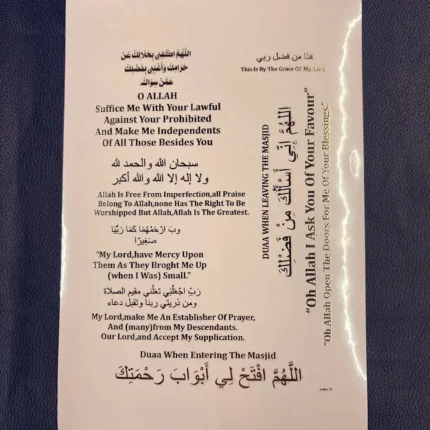 اللَّهُمَّ اكْفِنِي بِحَلَالِكَ عَنْ
حَرَامِكَ وَأَغْنِنِي بِفَضْلِكَ
عَمَّنْ سِوَاكَ
O ALLAH
Suffice Me With Your Lawful
Against Your Prohibited
And Make Me Independents
Of All Those Besides You
سبحان الله والحمد لله
ولا إله إلا الله والله أكبر
Allah Is Free From Imperfection,all Praise
Belong To Allah,none Has The Right To Be
Worshipped But Allah,Allah Is The Greatest.
رب ارْحَمْهُمَا كَمَا رَبَّيَانِي
صَغِيرًا
"My Lord,have Mercy Upon
Them As They Broght Me Up
(when I Was) Small."
رَبِّ اجْعَلْنِي مقيم الصلاة
ومن ذريتي ربنا وتقبل دعاء
My Lord,make Me An Establisher Of Prayer,
And (many)from My Descendants.
Our Lord,and Accept My Supplication.
Duaa When Entering The Masjid
اللَّهُمَّ افْتَحْ لِي أَبْوَابَ رَحْمَتِكَ
هذا من فضل ربي
This Is By The Grace Of My Lord
DUAA WHEN LEAVING THE MASJID
اللَّهُمَّ إِنِّي أَسْأَلُكَ مِنْ فَضْلِكَ
"Oh Allah I Ask You Of Your Favour"
"Oh Allah Open The Doors For Me Of Your Blessings."